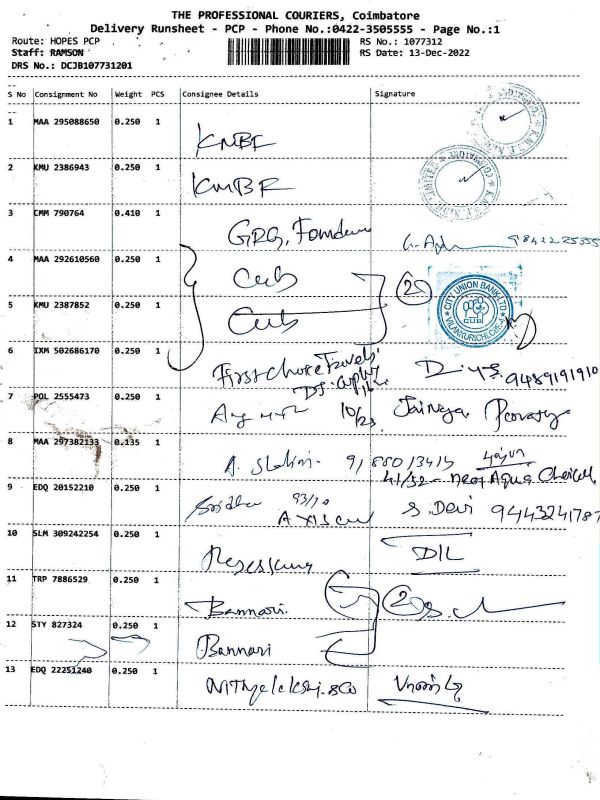 THE PROFESSIONAL COURIERS, Coimbatore
Delivery Runsheet - PCP - Phone No.:0422-3505555 - Page No.:1
Route: HOPES PCP RS No.: 1077312
Staff: RAMSON RS Date: 13-Dec-2022
DRS No.: DCJB107731201
S No Consignment No Weight PCS Consignee Details Signature
1 MAA 295088650 0.250 1
KMBF
2 KMU 2386943 0.250 1
KMBF
3 CMM 790764 0.410 1
GRG, 9842225555
4 MAA 292610560 0.250 1
Cub 2
CITY UNION BANK LTD
5 KMU 2387852 0.250 1
Cub
6 IXM 502686170 0.250 1
First Choice Travels 9489191910
7 POL 2555473 0.250 1
10/23
8 MAA 297382133 0.135 1
A. Shalini. 9188013413
41/52 - near Aqua
9 EDQ 20152210 0.250 1
Sridhar 93/10 S. Devi 9443241787
10 SLM 309242254 0.250 1
DIL
11 TRP 7886529 0.250 1
Bannari. 2
12 STY 827324 0.250 1
Bannari
13 EDQ 22251240 0.250 1